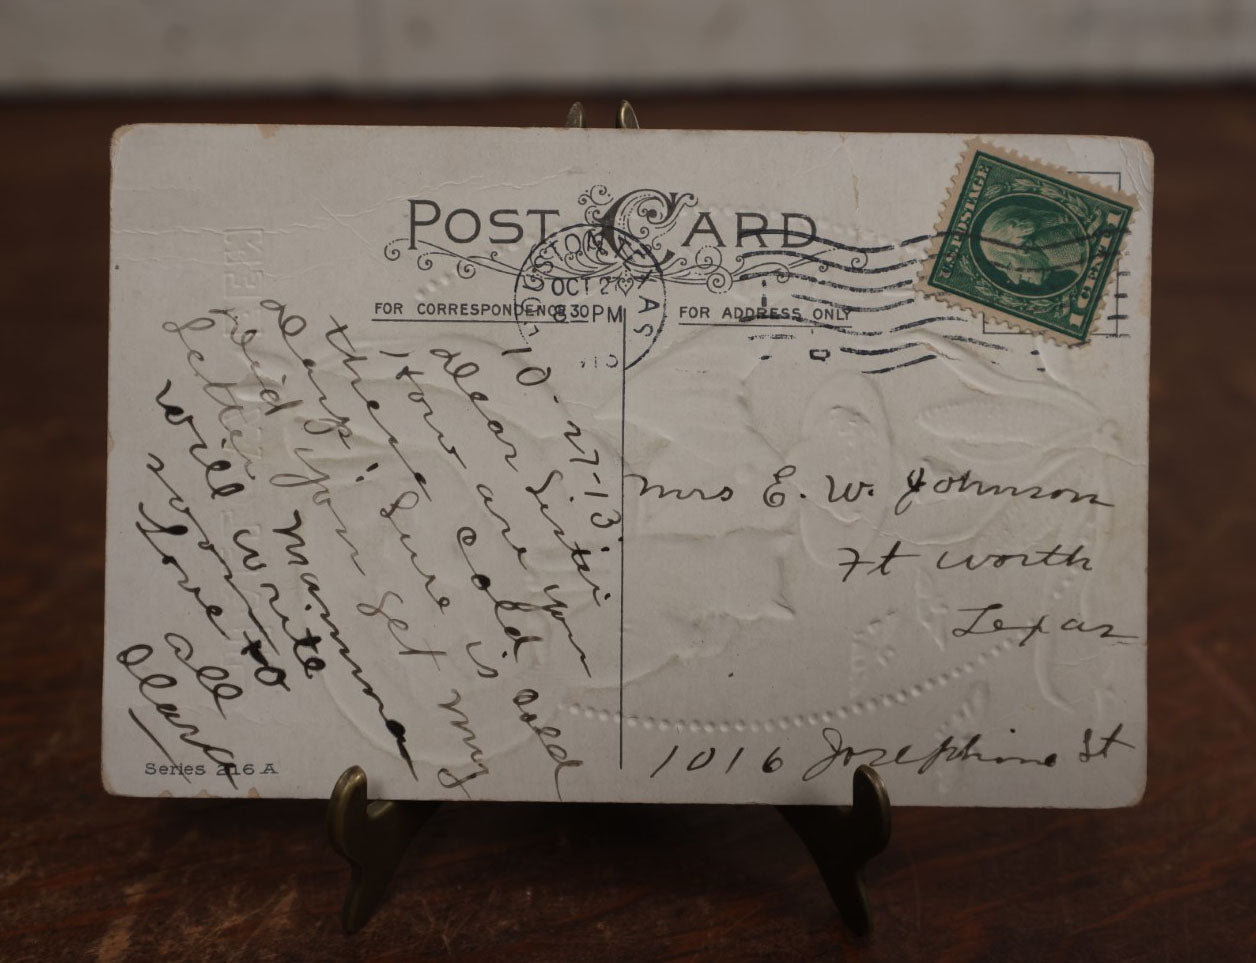 POST CARD
FOR CORRESPONDENCE
FOR ADDRESS ONLY
TEXAS
OCT 27
830 PM
U.S.POSTAGE
1 CENT 1
10-27-13.
Dear Sister
How are you
these cold cold
days. I sure is
did you get my
letter Mamma
will write
soon
love to
all
Clara
Mrs E. W. Johnson
Ft Worth
Texas
1016 Josephine St
Series 216 A